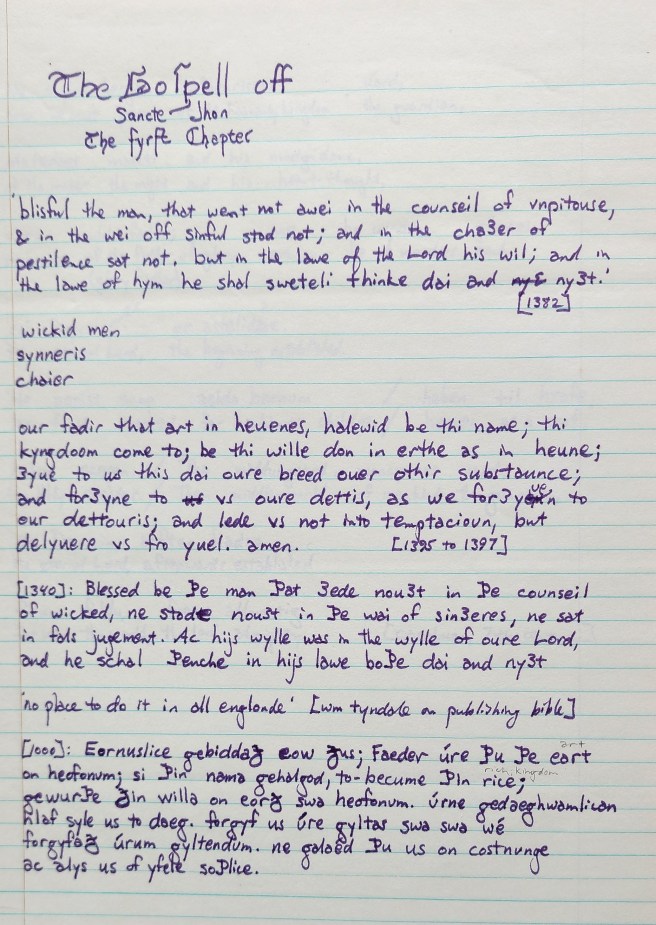 The Gospell off
Sancte Jhon
The fyrst Chapter
'blisful the man, that went not awei in the counseil of vnpitouse,
& in the wei off sinful stod not; and in the cha3er of
pestilence sat not. but in the lawe of the Lord his wil; and in
the lawe of hym he shal sweteli thinke dai and ny3t.'
[1382]
wickid men
synneris
chaier
our fadir that art in heuenes, halewid be thi name; thi
kyngdoom come to; be thi wille don in erthe as in heune;
3yue to us this dai oure breed ouer othir substaunce;
and for3yne to vs oure dettis, as we for3yuen to
our dettouris; and lede vs not into temptacioun, but
delyuere vs fro yuel. amen. [1395 to 1397]
[1340]: Blessed be Þe man Þat 3ede nou3t in Þe counseil
of wicked, ne stode nou3t in Þe wai of sin3eres, ne sat
in fals jugement. Ac hijs wylle was in the wylle of oure Lord,
and he schal Þenche in hijs lawe boÞe dai and ny3t
'no place to do it in all englonde' [wm tyndale on publishing bible]
[1000]: Eornuslice gebiddað eow ðus; Faeder úre Þu Þe eart
art
on heofonum; si Þin nama gehalgod, to-becume ÞIn rice;
rich, kingdom
gewurÞe ðin willa on eorð swa heofonum. úrne gedaeghwamlican
hlaf syle us to daeg. forgyf us úre gyltas swa swa wé
forgyfað úrum gyltendum. ne galaéd Þu us on costnunge
ac alys us of yfele soÞlice.